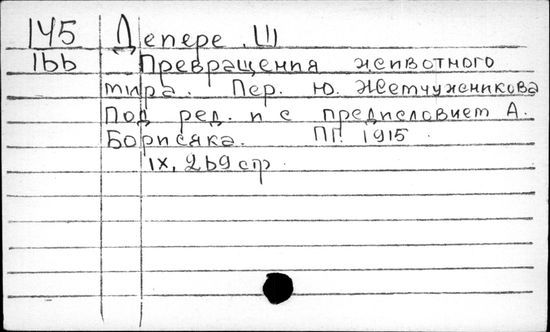 145 Депере, Ш
166 Превращения животного
мира. Пер. Ю. Жемчужникова
Под ред. и с предисловием А.
Борисяка. ПГ. 1915
IX, 269 стр.